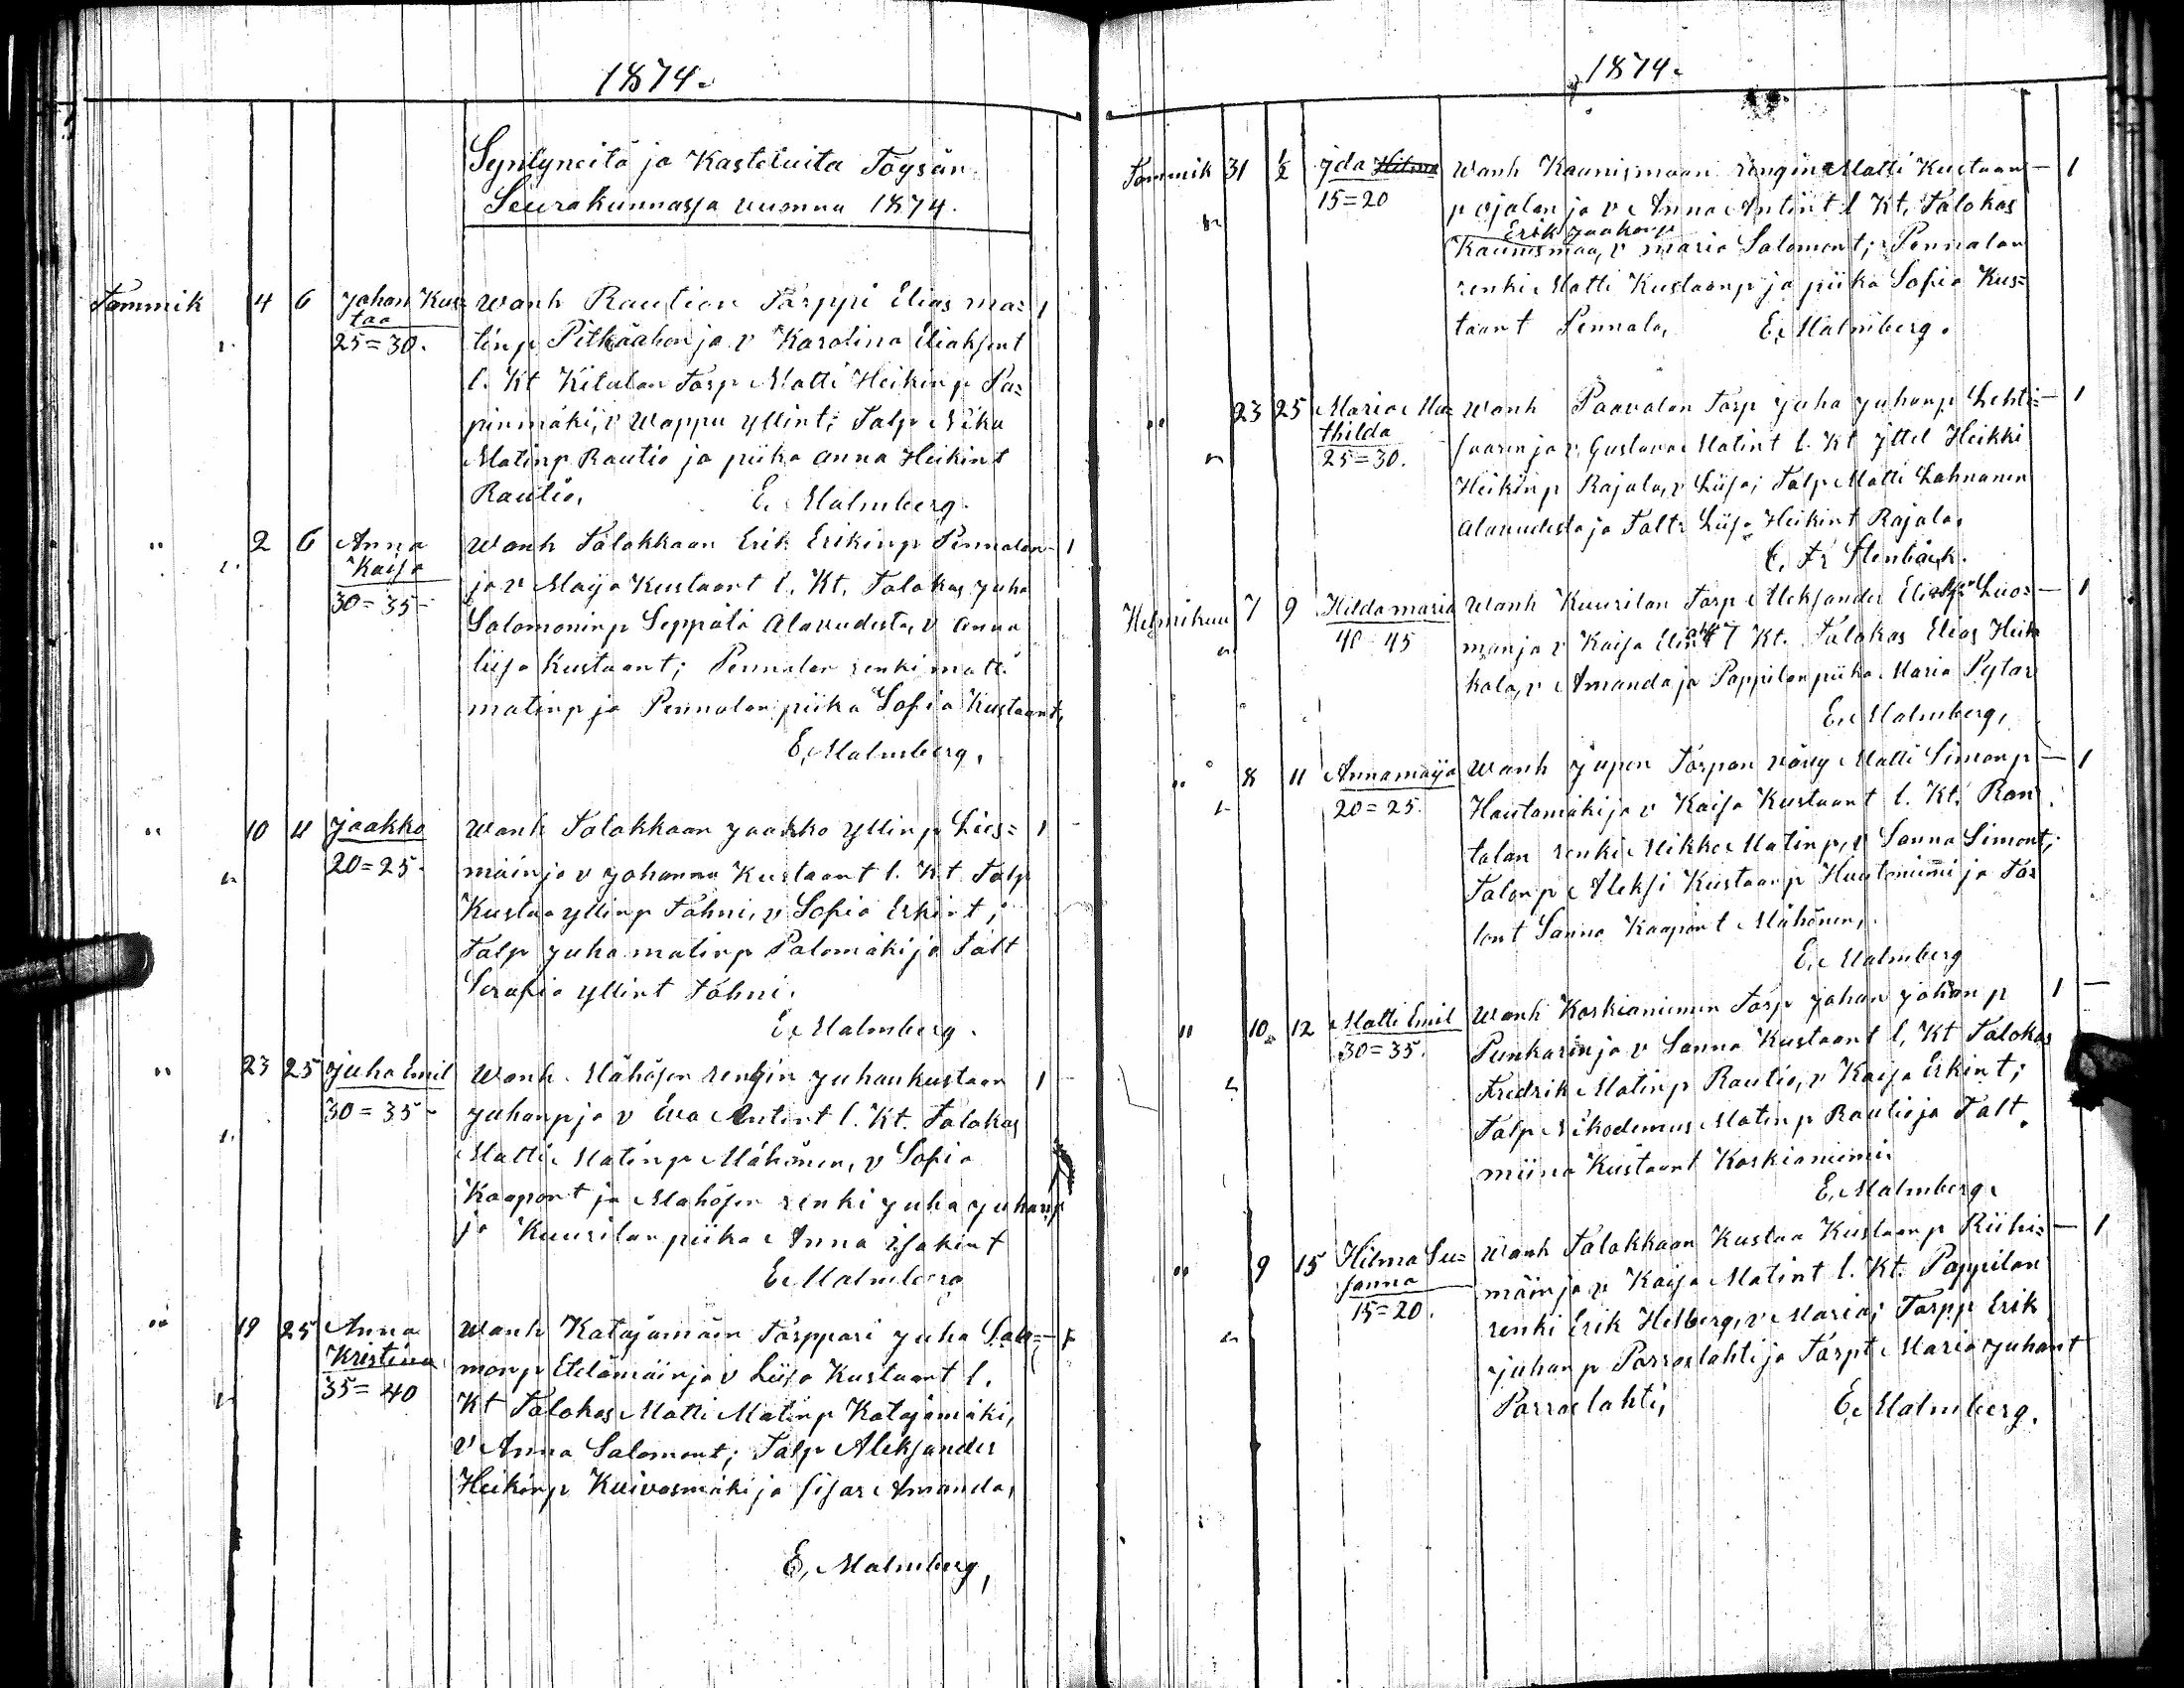 1874.
Syntyneitä ja Kasteluita Töysän
Seurakunnassa vuonna 1874.
Tammik 4 6 Johan Kus=
taa
25=30.
Wanh Raution Torppi Elias ma= 1
tinp Pitkäahon ja v Karolina Eliaksent
l. Kt Kitulan Torp Matti Heikinp Pa=
pinmäki, v Wappu Yllint; Talp Niku
Matinp Rautio ja piika Anna Heikint
Rautio, E. Malmberg.
" 2 6 Anna
Kaisa
30=35-
Wanh Talokkaan Erik Erikinp Pennalan - 1
ja v Maija Kustaant l. Kt. Talokas Juha
Salomoninp Seppälä Alavudesta, v Anna
liisa Kustaant; Pennalan renki matti
matinp ja Pennalan piika Sofia Kustaant,
E. Malmberg,
" 10 11 Jaakko
20=25.
Wanh Talokkaan Jaakko Yllinp Lies= 1
mäin ja v Johanna Kustaant l. Kt. Talp
Kustaa Yllinp Tohni, v Sofia Erkint;
Talp Juha matinp Palomäki ja Talt
Serafia Yllint Tohni.
E. Malmberg.
" 23 25 Juha Emil
30=35-
Wanh Mähösen rengin Juhan kustaan 1
Juhanp ja v Eva Antint l. Kt. Talokas
Matti Matinp Mähönen, v Sofia
Kaapont ja Mahösen renki Juha Juhanp
ja Kuurilan piika Anna Isakint
E. Malmberg
" 19 25 Anna
Kristina
35=40
Wanh Katajamäin Torppari Juha Salo= - 1
monp Etelämäin ja v Liisa Kustaant l.
Kt Talokas Matti Matinp Katajamäki,
v Anna Salomont; Talp Aleksander
Heikinp Kuivasmäki ja sisar Amanda,
E. Malmberg,
1874.
Tammik 31 1/2 Ida Hilma
15=20
Wanh Kaunismaan rengin Matti Kustaan - 1
pojalan ja v Anna Antint l Kt. Talokas
Erik Jaakonp
Kaunismaa, v maria Salomont; Pennalan
renki Matti Kustaanp ja piika Sofia Kus=
taant Pennala, E. Malmberg.
" 23 25 Maria Ma=
thilda
25=30.
Wanh Paavolan Torp Juha Juhanp Lehti= - 1
saaren ja v Gustava Matint l. Kt Ittel Heikki
Heikinp Rajala, v Liisa; Talp Matti Lahnanen
Alavudesta ja Talt Liisa Heikint Rajala.
C. Fr Stenbäck.
Helmikuu 7 9 Hilda maria
40=45
Wanh Kuurilan Torp Aleksander Eliaksp Luo= - 1
man ja v Kaisa Eliakst l Kt. Talokas Elias Heik
kala, v Amanda ja Pappilan piika Maria Pytar
E. Malmberg,
" 8 11 Anna maija
20=25.
Wanh Jupen Torpan vävy Matti Simonp - 1
Hautamäki ja v Kaisa Kustaant l. Kt. Ran
talan renki Mikko Matinp, v Sanna Simont;
Talonp Aleksi Kustaanp Hautoniemi ja Ta=
lont Sanna Kaapont Mähönen,
E. Malmberg
" 10 12 Matti Emil
30=35.
Wanh Koskianiemen Torp Johan Johan p 1 -
Punkarin ja v Sanna Kustaant l, Kt Talokas
Fredrik Matinp Rautio, v Kaisa Erkint;
Talp Nikodemus Matinp Rautio ja Talt
miina Kustaant Koskianiemi.
E. Malmberg.
" 9 15 Hilma Su=
sanna
15=20.
Wanh Talokkaan Kustaa Kustaanp Riihi= - 1
mäin ja v Kaisa Matint l. Kt. Pappilan
renki Erik Helberg, v Maria; Torpp Erik
Juhanp Porraslahti ja Torpt Maria Juhant
Porraslahti, E. Malmberg.